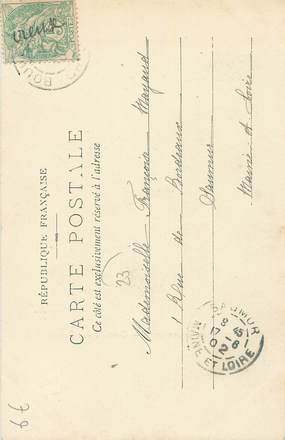 RÉPUBLIQUE FRANÇAISE
CARTE POSTALE
Ce côté est exclusivement réservé à l'adresse
23
Mademoiselle Françoise Mayaud
1 Rue de Bordeaux
Saumur
Maine et Loire
SAUMUR
MAINE ET LOIRE